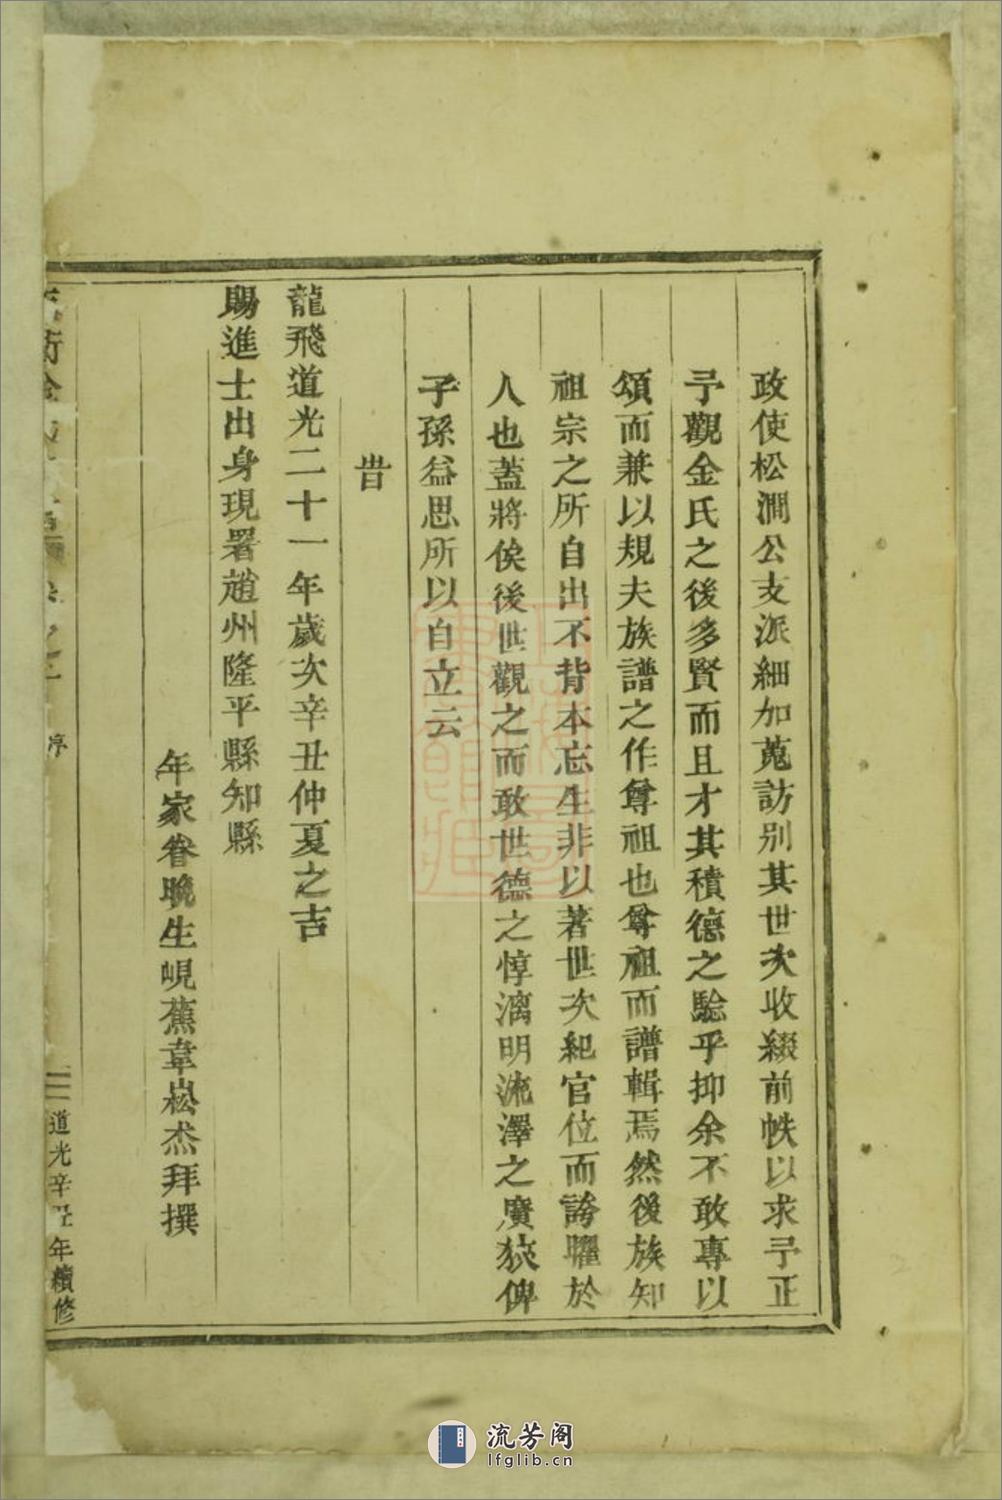 政使松澗公支派細加蒐訪別其世次收綴前帙以求予正
予觀金氏之後多賢而且才其積德之驗乎抑余不敢專以
頌而兼以規夫族譜之作尊祖也尊祖而譜輯焉然後族知
祖宗之所自出不背本忘生非以著世次紀官位而誇矅於
人也蓋將俟後世觀之而敢世德之惇漓明流澤之廣狹俾
子孫益思所以自立云
旹
龍飛道光二十一年歲次辛丑仲夏之吉
賜進士出身現署趙州隆平縣知縣
年家眷晚生峴蕉韋崧杰拜撰
序
道光辛丑年續修
流芳阁
lfglib.cn